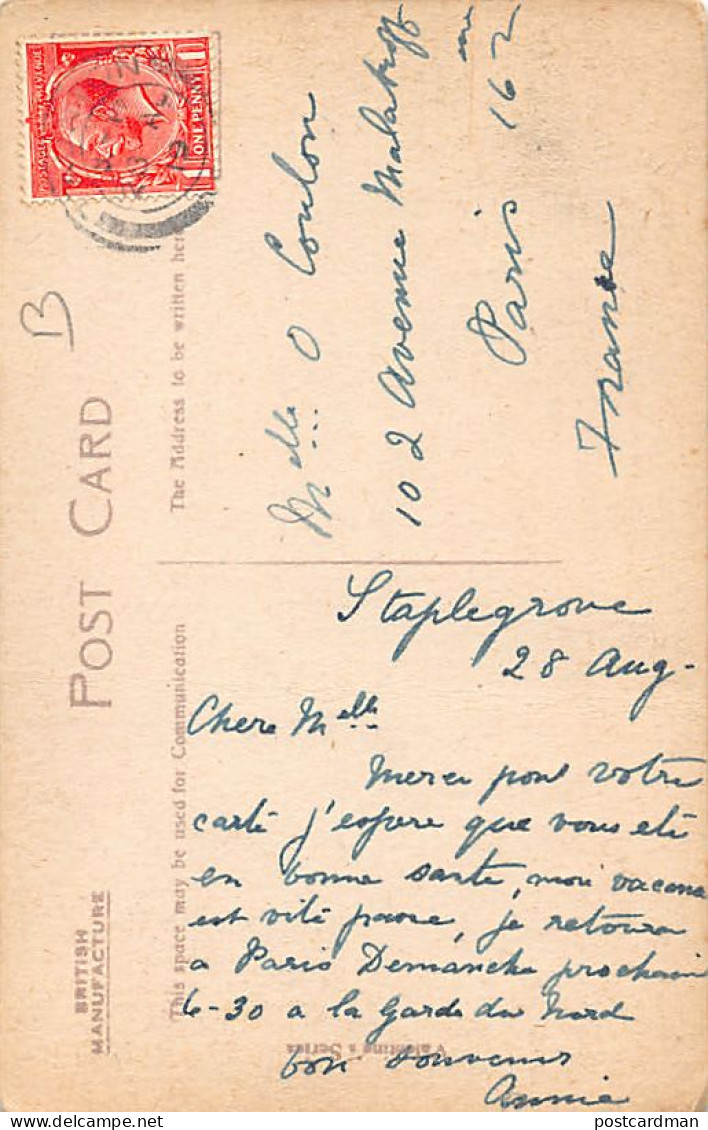 POST CARD
BRITISH
MANUFACTURE
This space may be used for Communication
The Address to be written here
ONE PENNY
B
Staplegrove
28 Aug-
Chere Melle
Merci pour votre
carte j'espere que vous ete
en bonne sante, mon vacanc
est vite passe, je retourn
a Paris Demanche prochain
6-30 a la Garde du Nord
bon souvenir
Annie
Melle O Coulon
102 Avenue Malakoff
Paris 16 me
France
Valentine's Series
postcardman